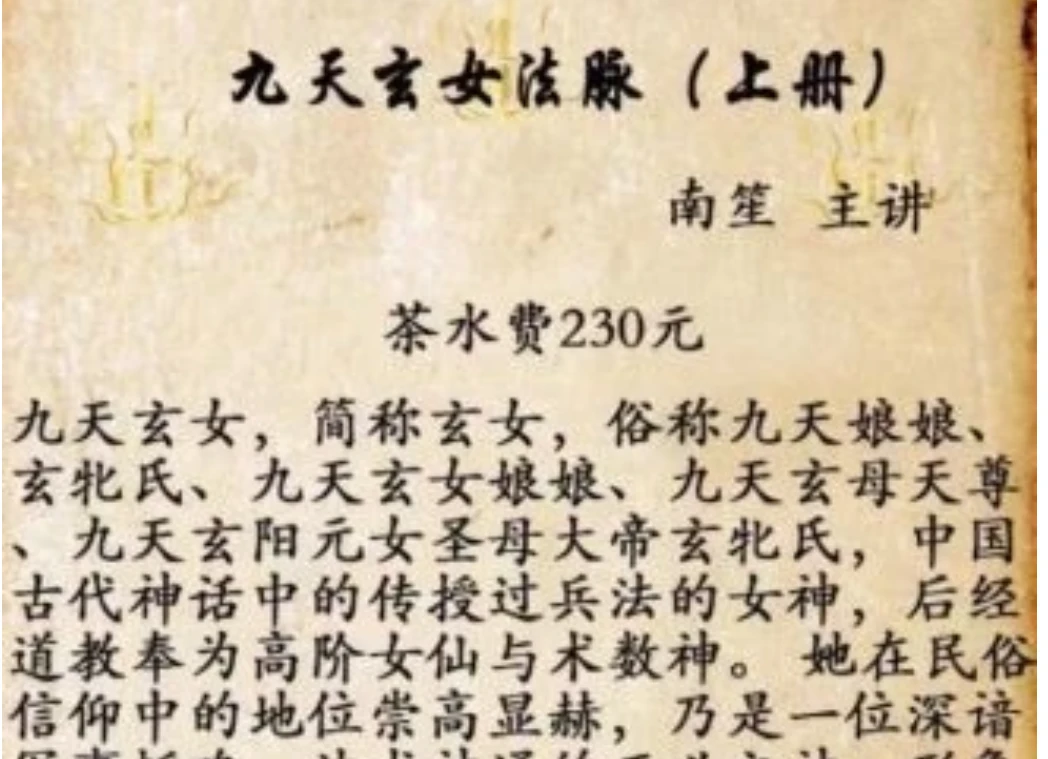 九天玄女法脉（上册）
南笙 主讲
茶水费230元
九天玄女，简称玄女，俗称九天娘娘、
玄牝氏、九天玄女娘娘、九天玄母天尊
、九天玄阳元女圣母大帝玄牝氏，中国
古代神话中的传授过兵法的女神，后经
道教奉为高阶女仙与术数神。她在民俗
信仰中的地位崇高显赫，乃是一位深谙